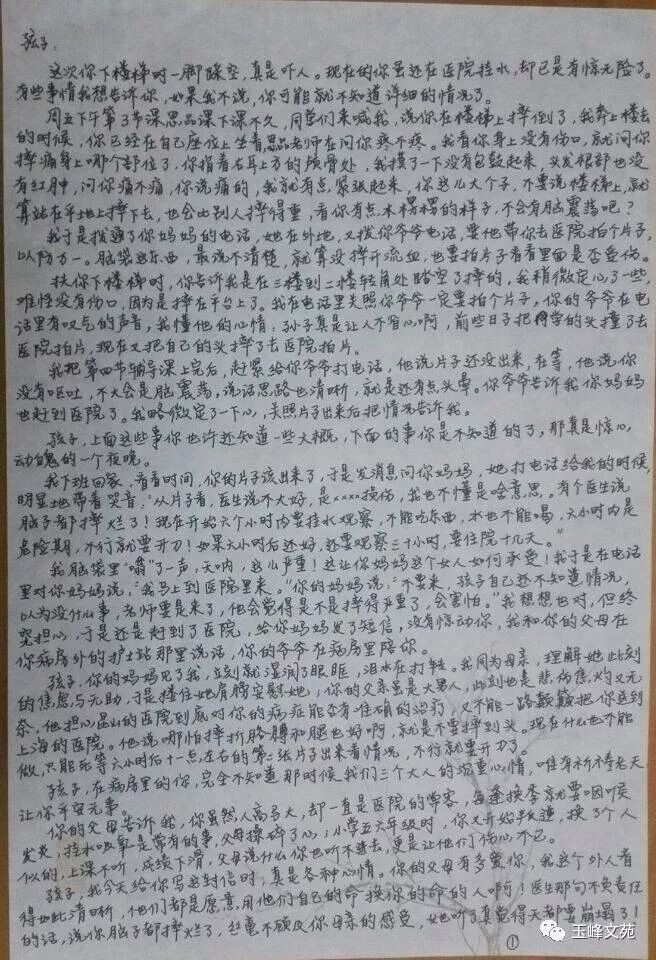 孩子:
这次你下楼梯时一脚踩空,真是吓人。现在的你虽还在医院挂水,却已是有惊无险了。
有些事情我想告诉你,如果我不说,你可能就不知道详细的情况了。
周五下午第3节课思品课下课不久,同学们来喊我,说你在楼梯上摔倒了,我奔上楼去
的时候,你已经在自己座位上坐着,思品老师在问你疼不疼。我看你身上没有伤口,就问你
摔痛身上哪个部位了,你指着右耳上方的颅骨处,我摸了一下没有包鼓起来,头发根部也没
有红肿,问你痛不痛,你说痛的,我就有点紧张起来,你这么大个子,不要说楼梯上,就
算站在平地上摔下去,也会比别人摔得重,看你有点木愣愣的样子,不会有脑震荡吧?
我于是拨通了你妈妈的电话,她在外地,又拨你爷爷电话,要他带你去医院拍个片子,
以防万一。脑袋这东西,最说不清楚,就算没摔开流血,也要拍片子看看里面是否受伤。
扶你下楼梯时,你告诉我是在三楼到二楼转角处踏空了摔的,我稍微定心了一些,
难怪没有伤口,因为是摔在平台上了。我在电话里关照你爷爷一定要拍个片子,你的爷爷在电
话里有叹气的声音,我懂他的心情:孙子真是让人不省心啊,前些日子把同学的头撞了去
医院拍片,现在又把自己的头摔了去医院拍片。
我把第四节辅导课上完后,赶紧给你爷爷打电话,他说片子还没出来,在等,他说你
没有呕吐,不大会是脑震荡,说话思路也清晰,就是还有点头晕。你爷爷告诉我你妈妈
也赶到医院了。我略微定了一下心,关照片子出来后把情况告诉我。
孩子,上面这些事你也许还知道一些大概,下面的事你是不知道的了,那真是惊心
动魄的一个夜晚。
我下班回家,看看时间,你的片子该出来了,于是发消息问你妈妈,她打电话给我的时候,
明显地带着哭音:“从片子看,医生说不大好,是xxxx损伤,我也不懂是啥意思。有个医生说
脑子都摔烂了!现在开始六个小时内要挂水观察,不能吃东西,水也不能喝,六小时内是
危险期,不行就要开刀!如果六小时后还好,还要观察三十小时,要住院十几天。”
我脑袋里“嗡”了一声,天呐,这么严重!这让你妈妈这个女人如何承受!我于是在电话
里对你妈妈说,“我马上到医院里来。”你的妈妈说:“不要来,孩子自己还不知道情况,
以为没什么事,老师要是来了,他会觉得是不是摔得严重了,会害怕。”我想想也对,但终
究担心,于是还是赶到了医院,给你妈妈发了短信,没有惊动你,我和你的父母在
你病房外的护士站那里说话,你的爷爷在病房里陪你。
孩子,你的妈妈见了我,立刻就湿润了眼眶,泪水在打转。我同为母亲,理解她此刻
的焦虑与无助,于是搂住她肩膀安慰她;你的父亲虽是大男人,此刻也是悲伤焦灼又无
奈,他担心昆山的医院到底对你的病症能否有准确的治疗,又不能一路颠簸把你送到
上海的医院。他说哪怕摔折胳膊和腿也好啊,就是不要摔到头。现在什么也不能
做,只能死等六小时后十一点左右的第二张片子出来看情况,不行就要开刀了。
孩子,在病房里的你,完全不知道那时候我们三个大人的沉重心情,唯有祈祷老天
让你平安无事。
你的父母告诉我,你虽然人高马大,却一直是医院的常客,每逢换季就要咽喉
发炎,挂水吸氧是常有的事,父母操碎了心;小学五六年级时,你又开始叛逆,换了个人
似的,上课不听,成绩下滑,父母说什么你也听不进去,更是让他们伤心不已。
孩子,我今天给你写这封信时,真是各种心情。你的父母有多爱你,我这个外人看
得如此清晰,他们都是愿意用他们自己的命换你的命的人啊!医生那句不负责任
的话,说你脑子都摔烂了,丝毫不顾及你母亲的感受,她听了真觉得天都要崩塌了!
①
玉峰文苑